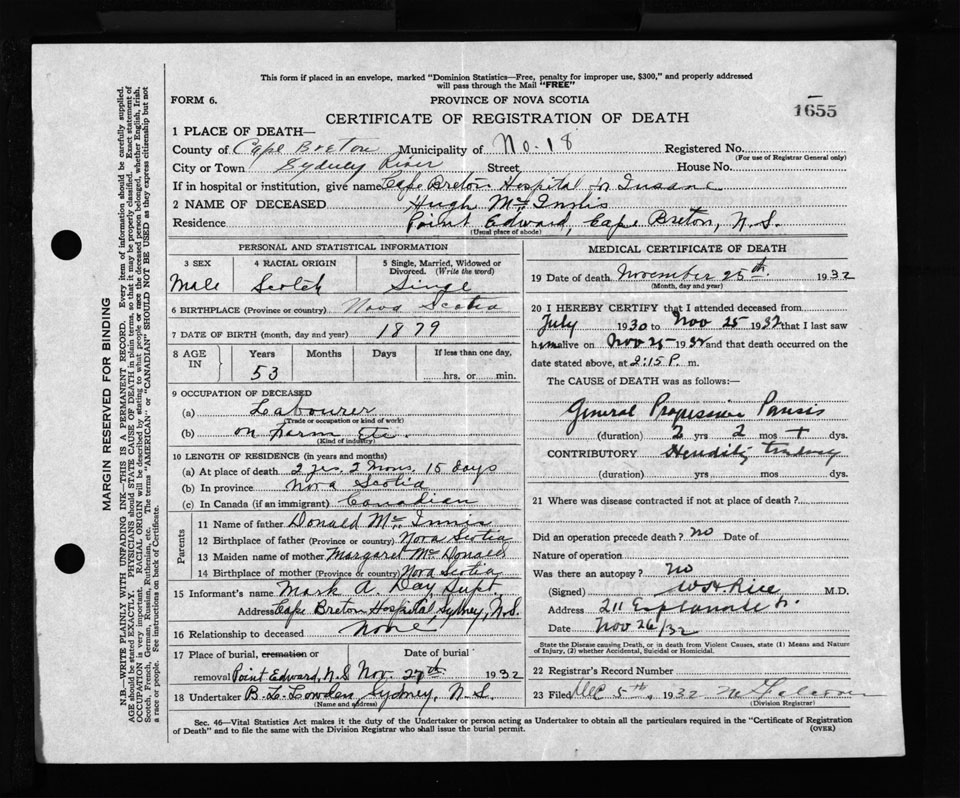 This form if placed in an envelope, marked "Dominion Statistics—Free, penalty for improper use, $300," and properly addressed
will pass through the Mail "FREE"
FORM 6.
PROVINCE OF NOVA SCOTIA
1655
CERTIFICATE OF REGISTRATION OF DEATH
1 PLACE OF DEATH—
County of Cape Breton Municipality of No. 18 Registered No.
(For use of Registrar General only)
City or Town Sydney River Street House No.
If in hospital or institution, give name Cape Breton Hospital for Insane
2 NAME OF DECEASED Hugh Mc Innis
Residence Point Edward, Cape Breton, N.S.
(Usual place of abode)
PERSONAL AND STATISTICAL INFORMATION
3 SEX 4 RACIAL ORIGIN 5 Single, Married, Widowed or
Divorced. (Write the word)
Male Scotch Single
6 BIRTHPLACE (Province or country) Nova Scotia
7 DATE OF BIRTH (month, day and year) 1879
8 AGE IN Years Months Days If less than one day,
53 hrs. or min.
9 OCCUPATION OF DECEASED
(a) Labourer
(Trade or occupation or kind of work)
(b) on Farm Etc.
(Kind of industry)
10 LENGTH OF RESIDENCE (in years and months)
(a) At place of death 2 yrs. 2 Mons. 15 days
(b) In province Nova Scotia
(c) In Canada (if an immigrant) Canadian
Parents
11 Name of father Donald Mc Innis
12 Birthplace of father (Province or country) Nova Scotia
13 Maiden name of mother Margaret Mc Donald
14 Birthplace of mother (Province or country) Nova Scotia
15 Informant's name Mark A. Day Supt.
Address Cape Breton Hospital, Sydney, N.S.
16 Relationship to deceased None
17 Place of burial, cremation or Date of burial
removal Point Edward, N.S Nov. 27th 1932
18 Undertaker B. L. Lowden Sydney, N.S.
(Name and address)
MEDICAL CERTIFICATE OF DEATH
19 Date of death November 25th 1932
(Month, day and year)
20 I HEREBY CERTIFY that I attended deceased from
July 1930 to Nov 25 1932 that I last saw
him alive on Nov 25 1932 and that death occurred on the
date stated above, at 2:15 P. m.
The CAUSE of DEATH was as follows:—
General Progressive Parisis
(duration) 2 yrs 2 mos + dys.
CONTRIBUTORY
(duration) yrs. mos. dys.
21 Where was disease contracted if not at place of death?
Did an operation precede death? no Date of
Nature of operation
Was there an autopsy? no
(Signed) W H Rice M.D.
Address 211 Esplanade
Date Nov 26/32
State the Disease causing Death, or in death from Violent Causes, state (1) Means and Nature
of Injury, (2) whether Accidental, Suicidal or Homicidal.
22 Registrar's Record Number
23 Filed Dec 5th, 1932
(Division Registrar)
Sec. 46—Vital Statistics Act makes it the duty of the Undertaker or person acting as Undertaker to obtain all the particulars required in the "Certificate of Registration
of Death" and to file the same with the Division Registrar who shall issue the burial permit. (OVER)
MARGIN RESERVED FOR BINDING
N.B.—WRITE PLAINLY WITH UNFADING INK—THIS IS A PERMANENT RECORD. Every item of information should be carefully supplied.
AGE should be stated EXACTLY. PHYSICIANS should STATE CAUSE OF DEATH in plain terms, so that it may be properly classified. Exact statement of
OCCUPATION is very important. RACIAL ORIGIN will be described by stating to what people or race the deceased person belonged, whether English, Irish,
Scotch, French, German, Russian, Ruthenian, etc. The terms "AMERICAN" or "CANADIAN" SHOULD NOT BE USED as they express citizenship but not
a race or people. See instructions on back of Certificate.